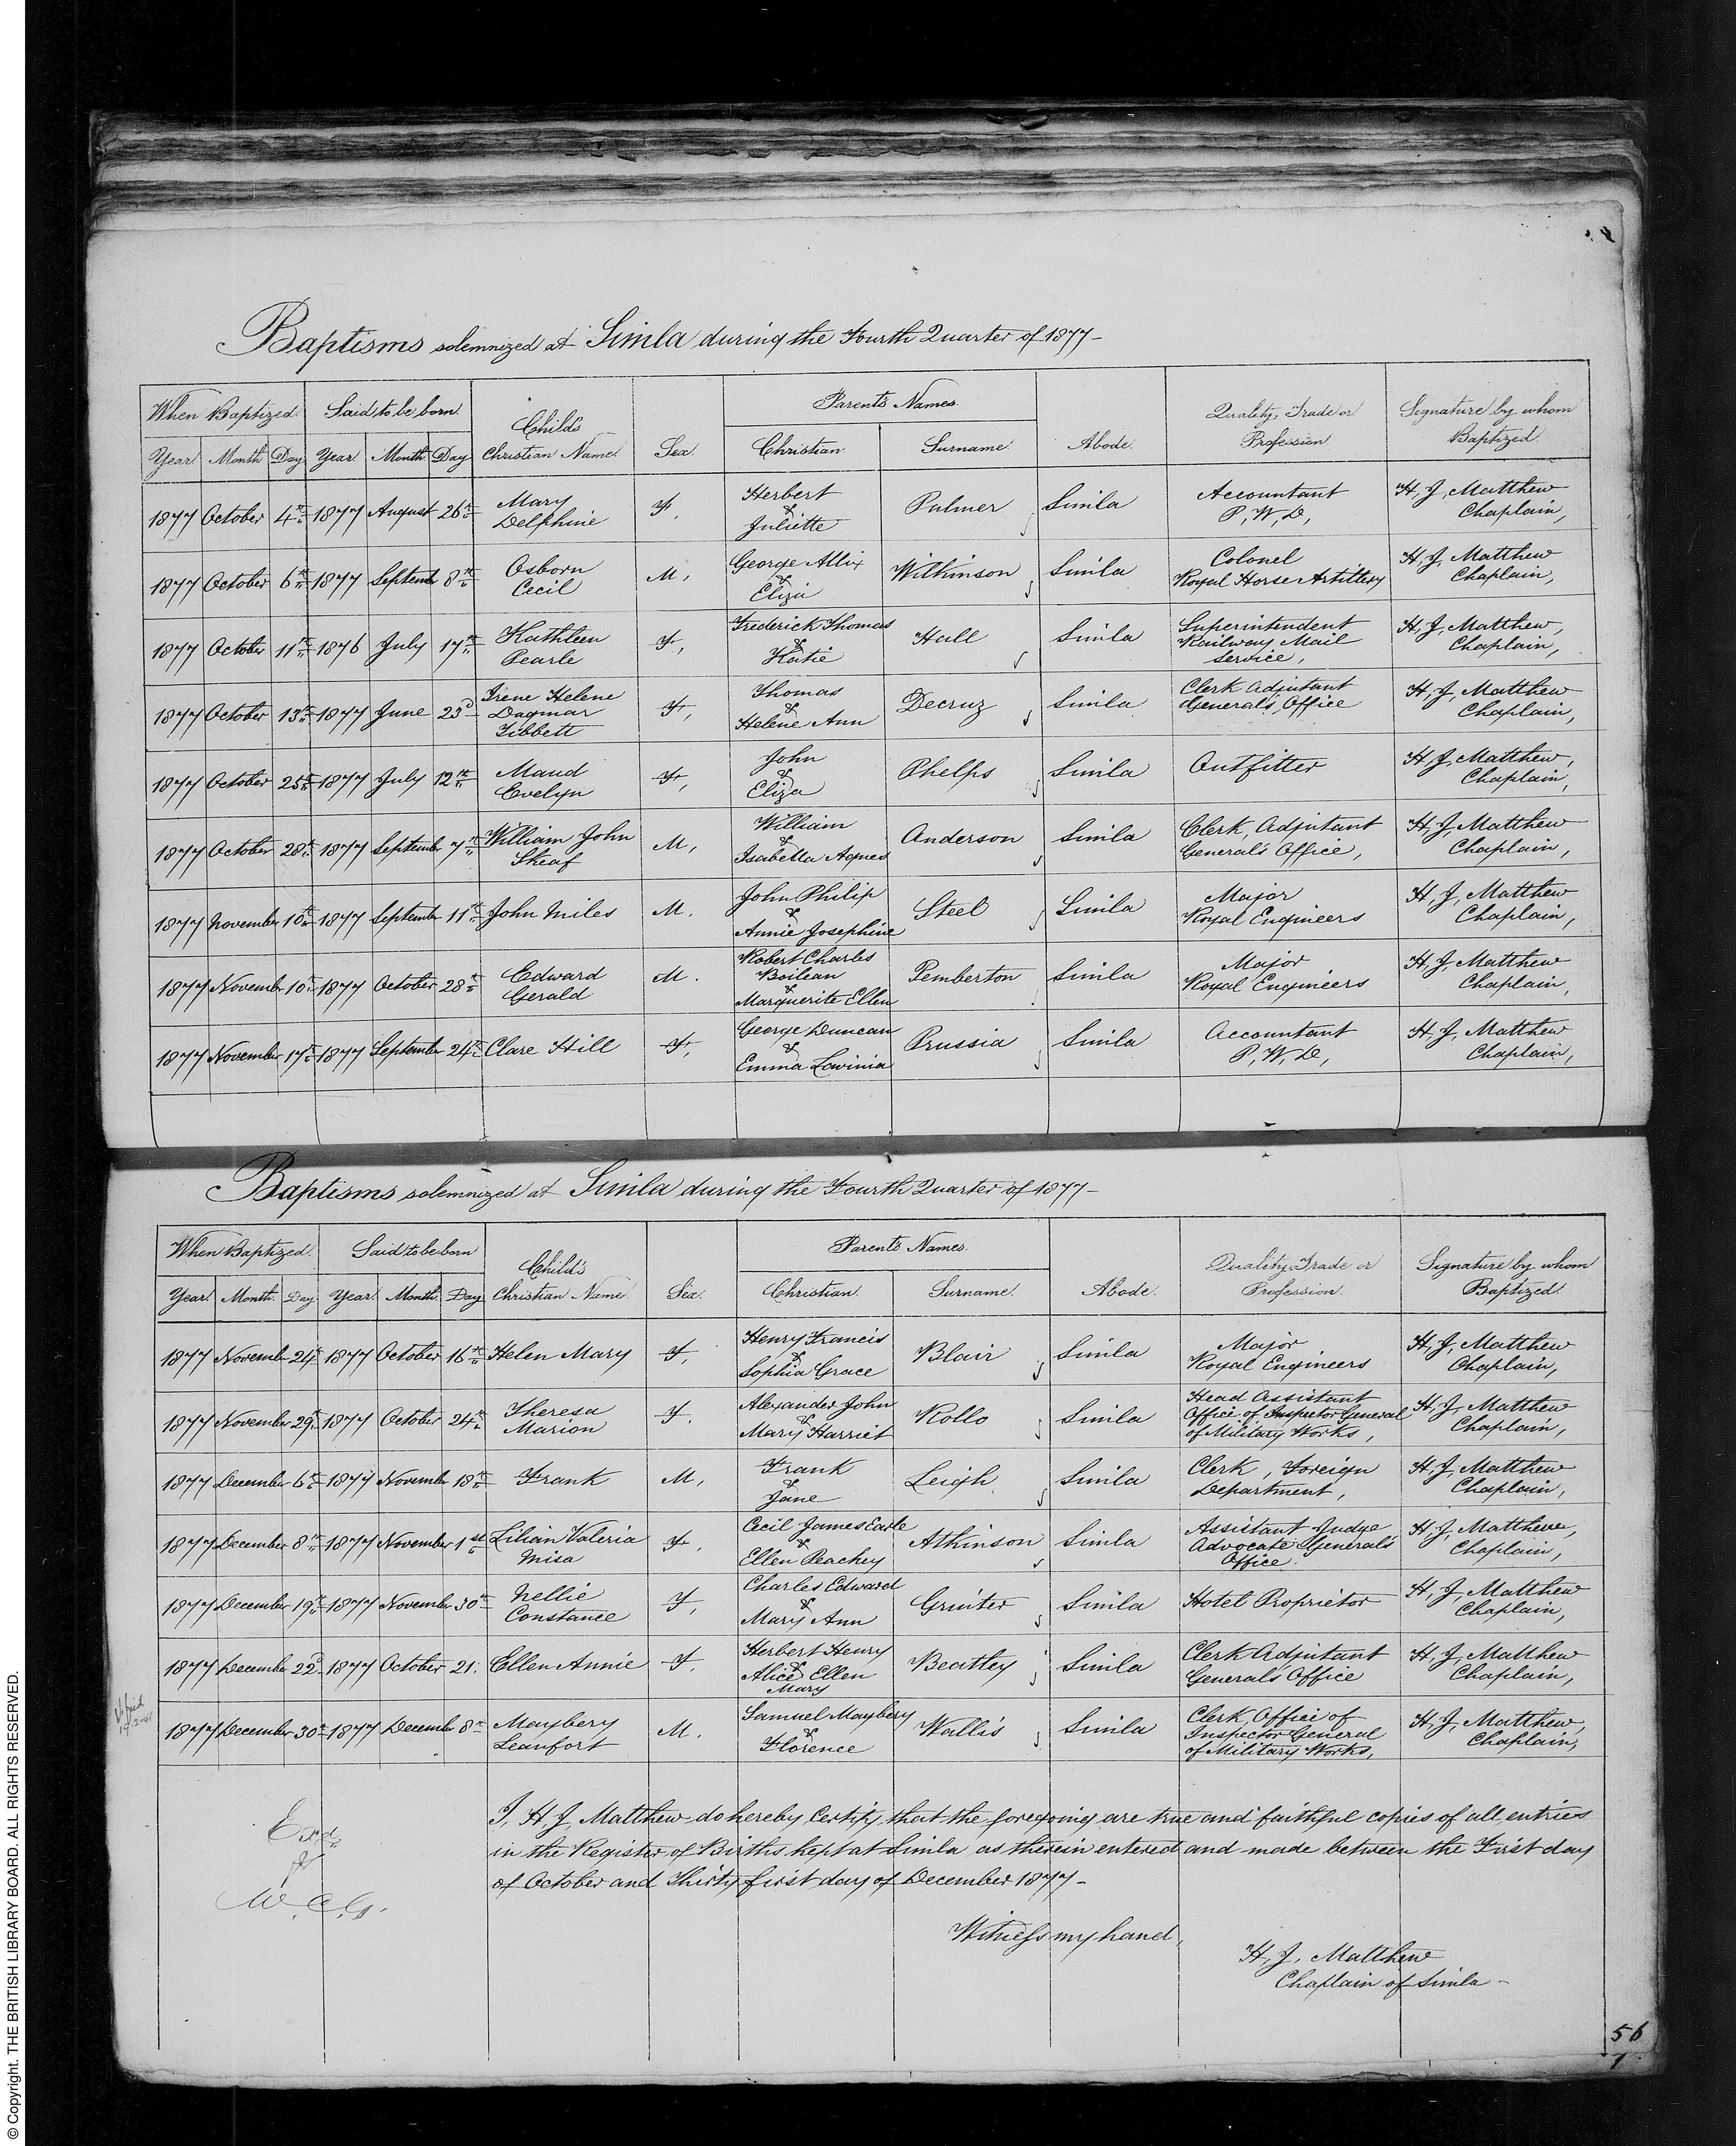 Baptisms solemnized at Simla during the Fourth Quarter of 1877-
When Baptized. Said to be born. Child's Christian Name. Sex. Parents Names. Abode. Quality, Trade or Profession Signature by whom Baptized.
Year Month Day Year Month Day Christian Surname.
1877 October 4th 1877 August 26th Mary Delphine F, Herbert & Juliette Palmer Simla Accountant P, W, D, H, J, Matthew Chaplain,
1877 October 6th 1877 Septemb 8th Osborn Cecil M, George Allix & Eliza Wilkinson Simla Colonel Royal Horse Artillery H, J, Matthew Chaplain,
1877 October 11th 1876 July 17th Kathleen Pearle F, Frederick Thomas & Katie Hall Simla Superintendent Railway Mail Service, H, J, Matthew, Chaplain,
1877 October 13th 1877 June 23d Irene Helene Dagmar Tibbett F, Thomas & Helene Ann Decruz Simla Clerk Adjutant General's Office H, J, Matthew Chaplain,
1877 October 25th 1877 July 12th Maud Evelyn F, John & Eliza Phelps Simla Outfitter H, J, Matthew, Chaplain,
1877 October 28th 1877 September 7th William John Sheaf M, William & Isabella Agnes Anderson Simla Clerk, Adjutant General's Office, H, J, Matthew Chaplain,
1877 November 10th 1877 September 11th John Miles M. John Philip & Annie Josephine Steel Simla Major Royal Engineers H, J, Matthew Chaplain,
1877 Novemb 10th 1877 October 28th Edward Gerald M. Robert Charles Boileau & Marguerite Ellen Pemberton Simla Major Royal Engineers H, J, Matthew Chaplain,
1877 November 17th 1877 September 24th Clare Hill F, George Duncan & Emma Lovinia Prussia Simla Accountant P, W, D, H, J, Matthew Chaplain,
Baptisms solemnized at Simla during the Fourth Quarter of 1877-
When Baptized. Said to be born Child's Christian Name. Sex. Parents Names. Abode. Quality, Trade or Profession. Signature by whom Baptized.
Year Month. Day. Year. Month. Day Christian. Surname.
1877 Novemb 24th 1877 October 16th Helen Mary F, Henry Francis & Sophia Grace Blair Simla Major Royal Engineers H, J, Matthew Chaplain,
1877 November 29th 1877 October 24th Theresa Marion F. Alexander John & Mary Harriet Rollo Simla Head Assistant Office of Inspector General of Military Works, H, J, Matthew Chaplain,
1877 December 6th 1877 Novemb 18th Frank M, Frank & Jane Leigh Simla Clerk, Foreign Department, H, J, Matthew Chaplain,
1877 December 8th 1877 November 1st Lilian Valeria Misa F. Cecil James Earle & Ellen Peachey Atkinson Simla Assistant Judge Advocate General's Office. H, J, Matthew, Chaplain,
1877 December 19th 1877 November 30th Nellie Constance F, Charles Edward & Mary Ann Grinter Simla Hotel Proprietor H, J, Matthew Chaplain,
1877 December 22d 1877 October 21. Ellen Annie F. Herbert Henry & Alice Ellen Mary Beatley Simla Clerk Adjutant General's Office H, J, Matthew Chaplain,
1877 December 30th 1877 Decemb 8th Maybery Leaufort M. Samuel Maybery & Florence Wallis Simla Clerk, Office of Inspector General of Military Works, H, J, Matthew, Chaplain,
I, H, J, Matthew do hereby Certify that the foregoing are true and faithful copies of all entries
in the Register of Births kept at Simla as therein entered and made between the First day
of October and Thirty first day of December 1877-
Exd
Witness my hand,
H, J, Matthew
Chaplain of Simla -
56
© Copyright. THE BRITISH LIBRARY BOARD. ALL RIGHTS RESERVED.